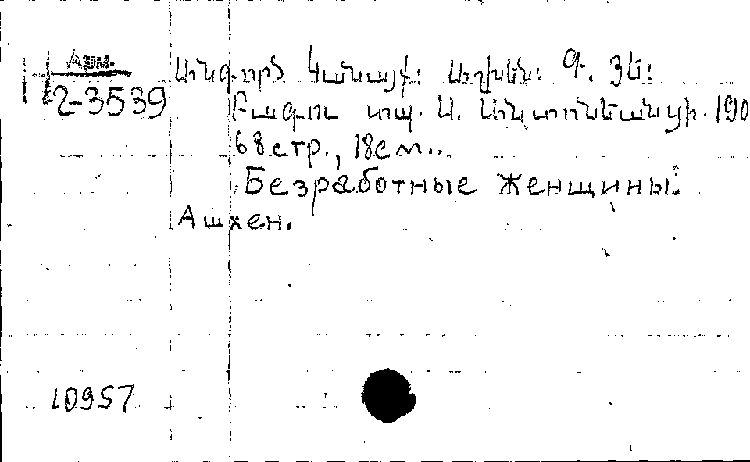 Арм.
2-3539
Անգործ կանայք: Աշխեն: Գ. Յե:
Բագու տպ. Ա. Անտոնեանցի. 190
68 стр., 18 см..
Безработные женщины.
Ашхен.
10957